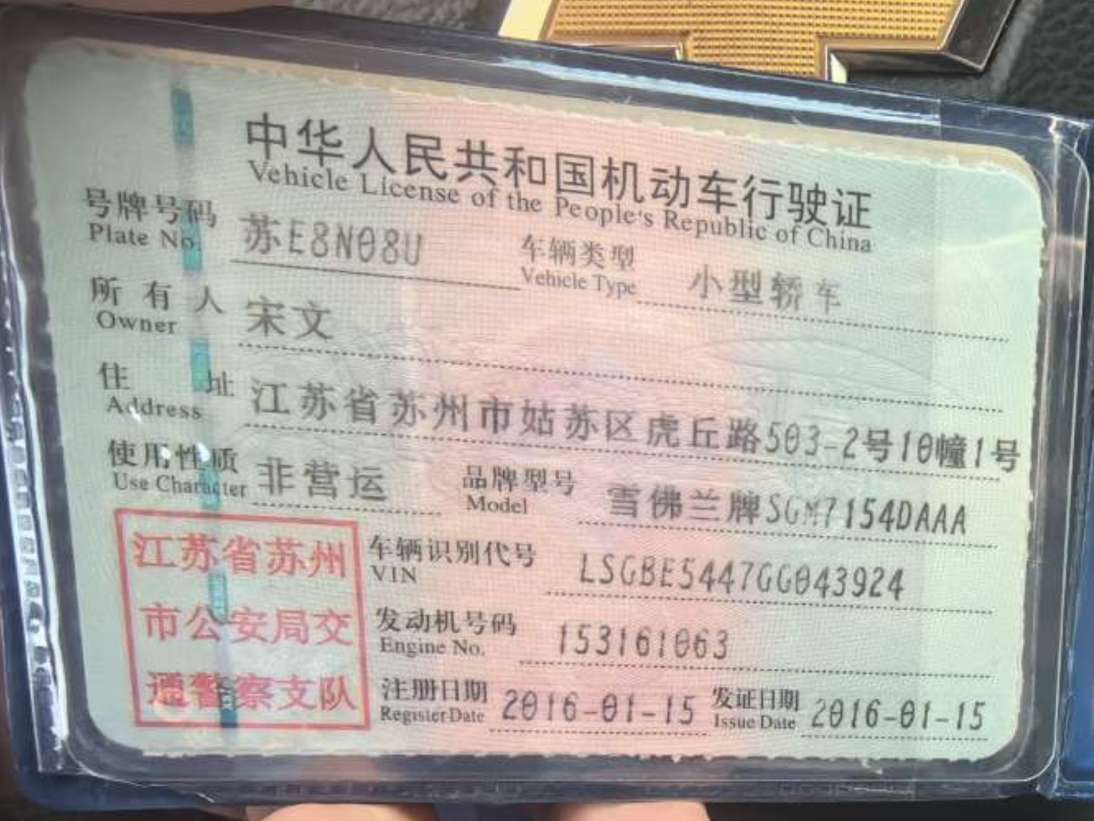 中华人民共和国机动车行驶证
Vehicle License of the People's Republic of China
号牌号码 苏E8N08U 车辆类型 小型轿车
Plate No. Vehicle Type
所有人 宋文
Owner
住址 江苏省苏州市姑苏区虎丘路503-2号10幢1号
Address
使用性质 非营运 品牌型号 雪佛兰牌SGM7154DAAA
Use Character Model
江苏省苏州
市公安局交
通警察支队
车辆识别代号 LSGBE5447GG043924
VIN
发动机号码 153161063
Engine No.
注册日期 2016-01-15 发证日期 2016-01-15
Register Date Issue Date